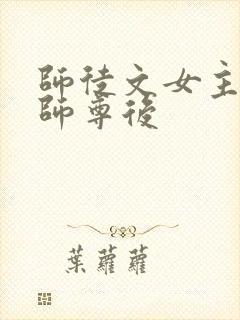 師徒文女主
師尊後
葉蘿蘿